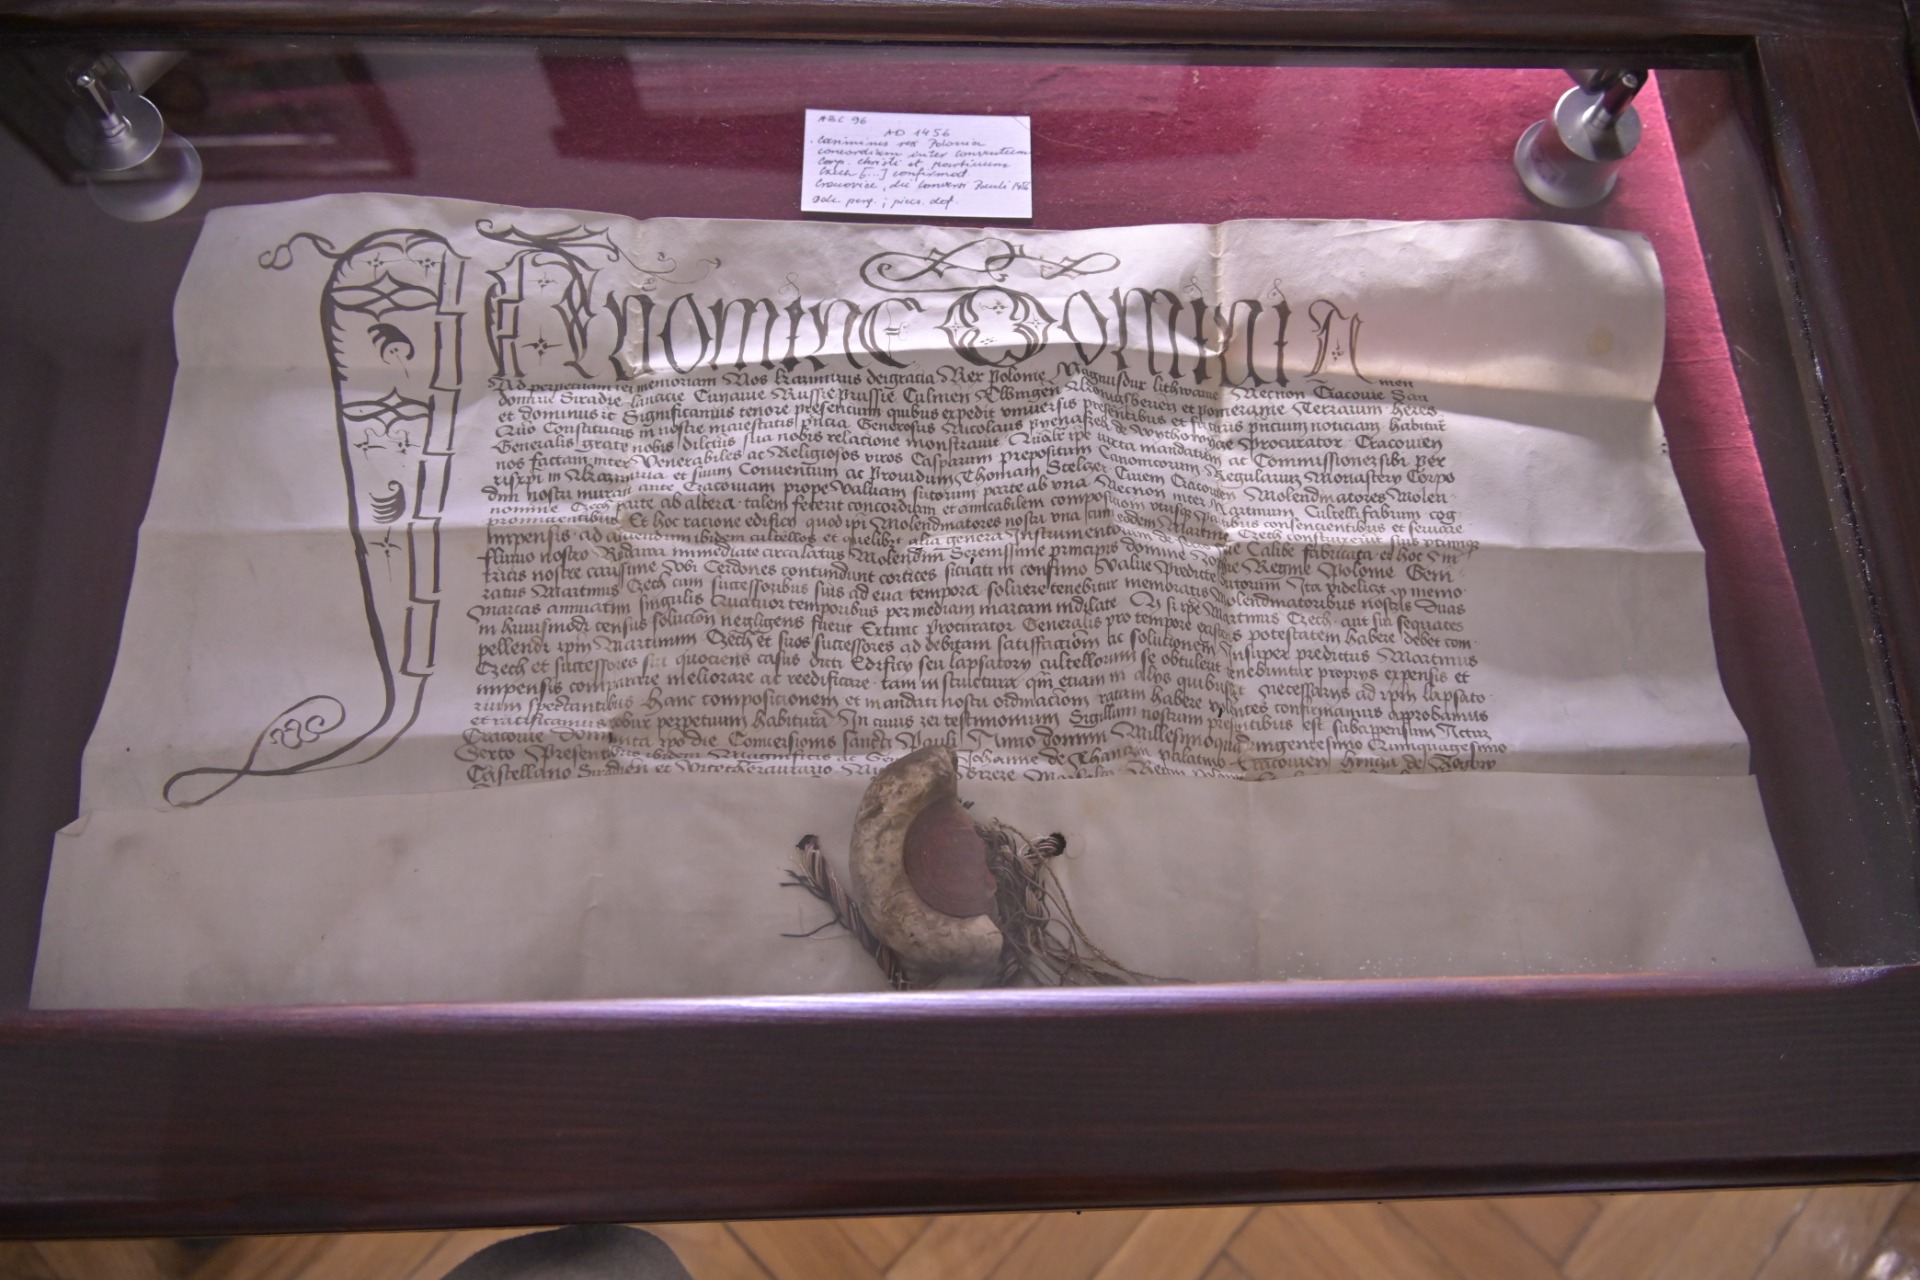 ABC 96
AD 1456
Casimirus rex Poloniae
concordiam inter conventum
Corp. Christi et Martinum
Czech [...] confirmat
Cracoviae, die convers Pauli 1456
Dok. perg.; piecz. dof.
In nomine Domini A
men
Ad perpetuam rei memoriam Nos kazimirus dei gracia Rex polonie Magnusdux lithwanie Necnon Cracouie San
domirie Siradie lancicie Cuyauie Russie prussie Culmen Elbingen et pomeranie Terrarum heres
et dominus Significamus tenore presencium quibus expedit vniuersis presentibus et futuris noticiam habitur
Quo Constitutus in nostre maiestatis Generosus Nicolaus de procurator Cracouien
Generalis grate nobis dilctus sua nobis relacione monstrauit iuxta mandatum ac Commissionem sibi per
nos factam inter Venerabiles ac Religiosos viros Casparum prepositum Canonicorum Regularium Monastery Corpo
risxpi in kazimiria et suum Conuentum ac prouidum Thomam Stelczer Ciuem Cracouien Molendinatores Molen
dini nostri ante Cracouiam prope Valuam sutorum parte ab vna Necnon inter Martinum Cultellifabrum cog
nomine Czech parte ab altera talem fecerit concordiam et amicabilem composicionem vtrisque partibus consencientibus et seruare
promittentibus Et hoc racione edificy quod ipi Molendinatores nostri vna cum eodem Martino Czech construxerut suis
Impensis ad acuendum ibidem cultellos et quelibet alia genera Instrumentorum de Calibe fabricata et hoc In
fluuio nostro Rudawa immediate circa latus Molendini Serenissime principis domine Regine polonie Geni
tricis nostre carissime vbi Cerdones contundunt cortices situati in confinio Value predicte Sutorum Ita videlicet memo
ratus Martinus Czech cum successoribus suis ad eua tempora soluere tenebitur memoratis Molendinatoribus nostris duas
marcas annuatim singulis temporibus per mediam marcam Martinus Czech aut sui sequaces
in huiusmodi census solucion negligens fuerit Extunc procurator Generalis pro tempore potestatem habere debet com
pellendi ipm Martinum Czech et suos successores ad debitam satisfaccion ac solucionem Insuper predictus Martinus
Czech et successores sui quociens casus dicti Edificy seu lapsatory cultellorum se obtulerit tenebuntur proprys expensis et
impensis comparare meliorare ac reedificare tam in structura qm eciam in alys quibuscunque necessarys ad ipm lapsato
rium spectantibus Hanc composicionem et mandati nostri ordinacion ratam habere volentes confirmamus approbamus
et ratificamus robur perpetuum habitura In cuius rei testimonium Sigillum nostrum presentibus est subappensum Actu
Cracouie die Conuersionis sancti Pauli Anno domini Millesimoquadringentesimo Quinquagesimo
Sexto Presentibus ibidem Magnificis ac Johanne de palatino Cracouien
Castellano Siradien et Marschalco